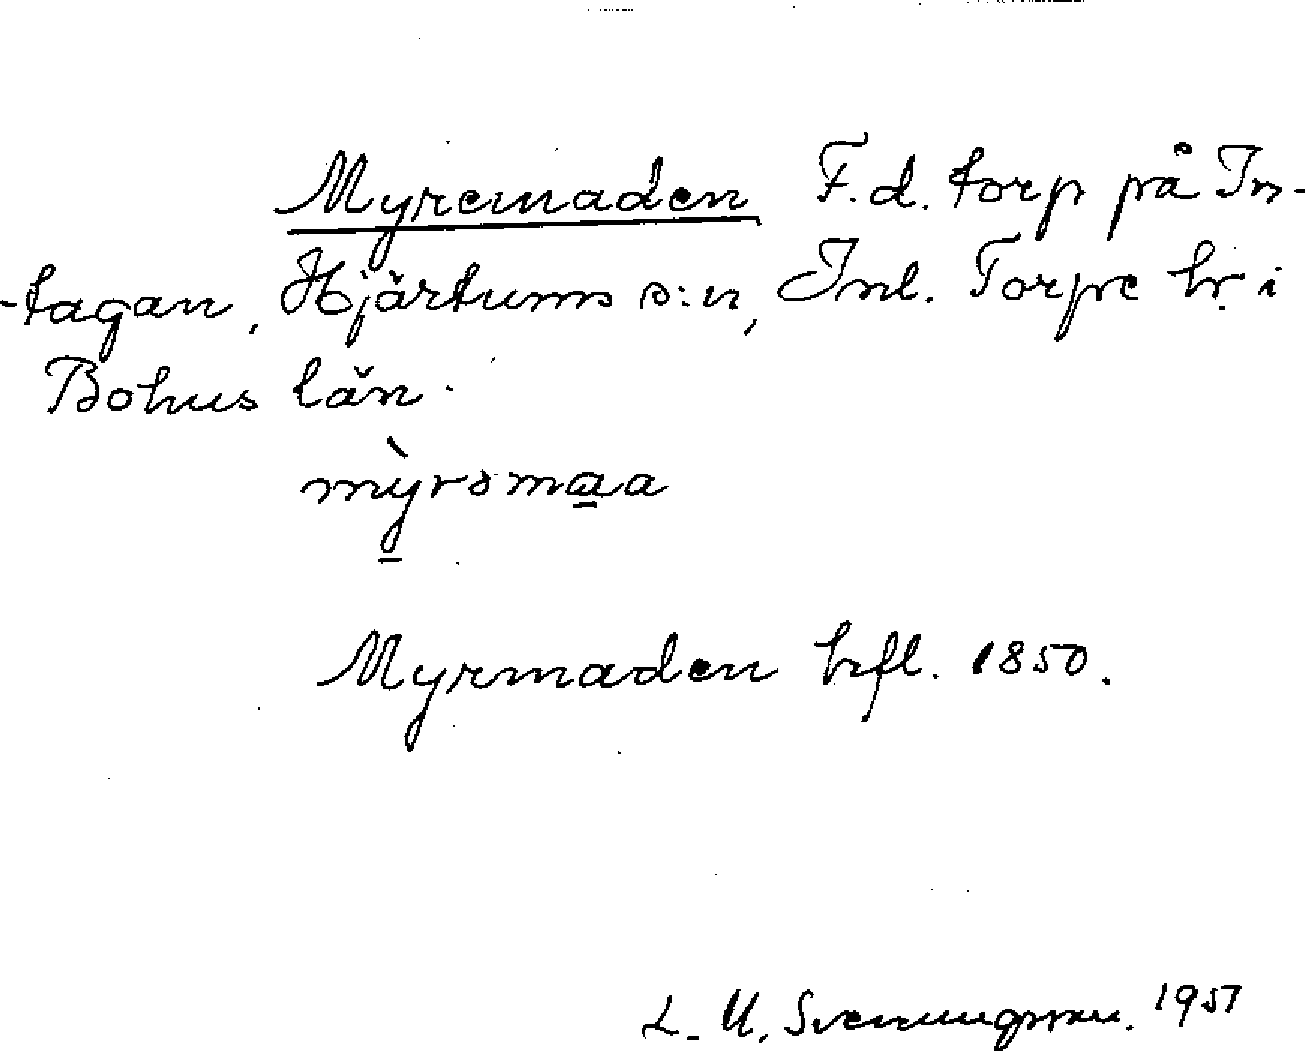 Myremaden F.d. torp på In-
-tagan, Hjärtums s:n, Inl. Torpe hr i
Bohus län.
mỳrəmaa
Myrmaden hfl. 1850.
L. U. Svenungsson. 1957